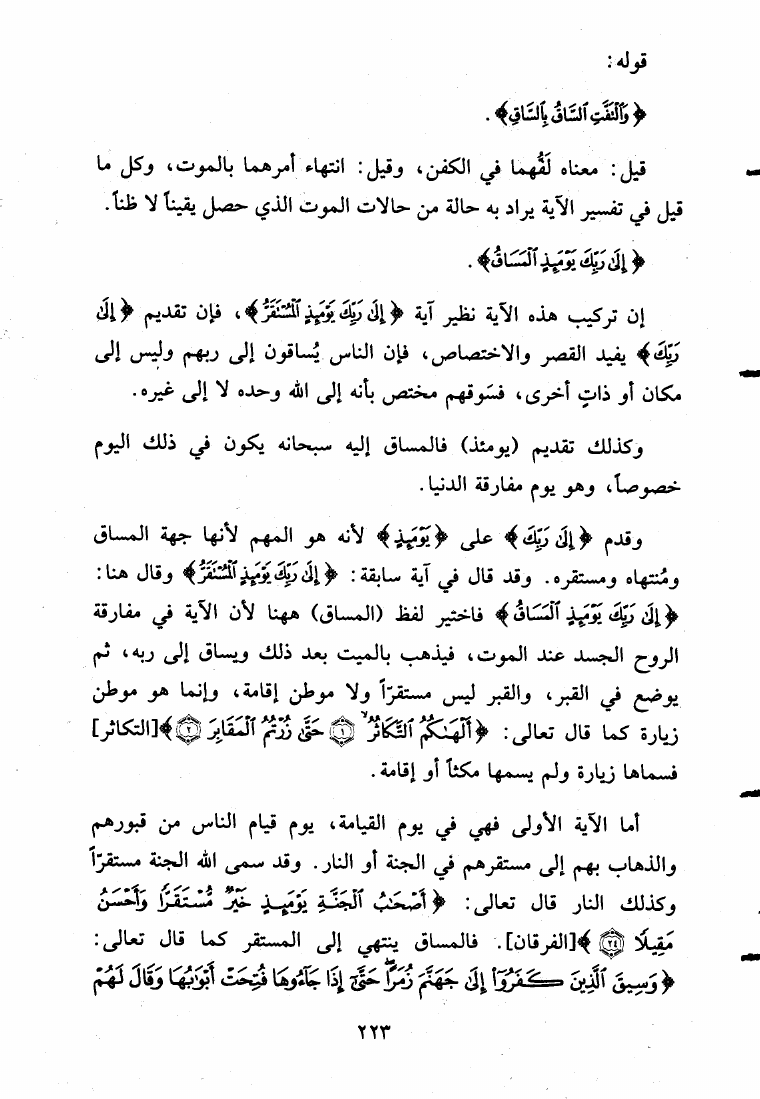 قوله:
﴿وَٱلْتَفَّتِ ٱلسَّاقُ بِٱلسَّاقِ﴾.
قيل: معناه لَفُّهما في الكفن، وقيل: انتهاء أمرهما بالموت، وكل ما
قيل في تفسير الآية يراد به حالة من حالات الموت الذي حصل يقيناً لا ظناً.
﴿إِلَىٰ رَبِّكَ يَوْمَئِذٍ ٱلْمَسَاقُ﴾.
إن تركيب هذه الآية نظير آية ﴿إِلَىٰ رَبِّكَ يَوْمَئِذٍ ٱلْمُسْتَقَرُّ﴾، فإن تقديم ﴿إِلَىٰ
رَبِّكَ﴾ يفيد القصر والاختصاص، فإن الناس يُساقون إلى ربهم وليس إلى
مكان أو ذاتٍ أخرى، فسَوقهم مختص بأنه إلى الله وحده لا إلى غيره.
وكذلك تقديم (يومئذ) فالمساق إليه سبحانه يكون في ذلك اليوم
خصوصاً، وهو يوم مفارقة الدنيا.
وقدم ﴿إِلَىٰ رَبِّكَ﴾ على ﴿يَوْمَئِذٍ﴾ لأنه هو المهم لأنها جهة المساق
ومُنتهاه ومستقره. وقد قال في آية سابقة: ﴿إِلَىٰ رَبِّكَ يَوْمَئِذٍ ٱلْمُسْتَقَرُّ﴾ وقال هنا:
﴿إِلَىٰ رَبِّكَ يَوْمَئِذٍ ٱلْمَسَاقُ﴾ فاختير لفظ (المساق) ههنا لأن الآية في مفارقة
الروح الجسد عند الموت، فيذهب بالميت بعد ذلك ويساق إلى ربه، ثم
يوضع في القبر، والقبر ليس مستقرّاً ولا موطن إقامة، وإنما هو موطن
زيارة كما قال تعالى: ﴿أَلْهَىٰكُمُ ٱلتَّكَاثُرُ ۙ ١ حَتَّىٰ زُرْتُمُ ٱلْمَقَابِرَ ٢﴾[التكاثر]
فسماها زيارة ولم يسمها مكثاً أو إقامة.
أما الآية الأولى فهي في يوم القيامة، يوم قيام الناس من قبورهم
والذهاب بهم إلى مستقرهم في الجنة أو النار. وقد سمى الله الجنة مستقرّاً
وكذلك النار قال تعالى: ﴿أَصْحَٰبُ ٱلْجَنَّةِ يَوْمَئِذٍ خَيْرٌ مُّسْتَقَرًّا وَأَحْسَنُ
مَقِيلًا ٢٤﴾[الفرقان]. فالمساق ينتهي إلى المستقر كما قال تعالى:
﴿وَسِيقَ ٱلَّذِينَ كَفَرُوٓا۟ إِلَىٰ جَهَنَّمَ زُمَرًا ۖ حَتَّىٰٓ إِذَا جَآءُوهَا فُتِحَتْ أَبْوَٰبُهَا وَقَالَ لَهُمْ
٢٢٣